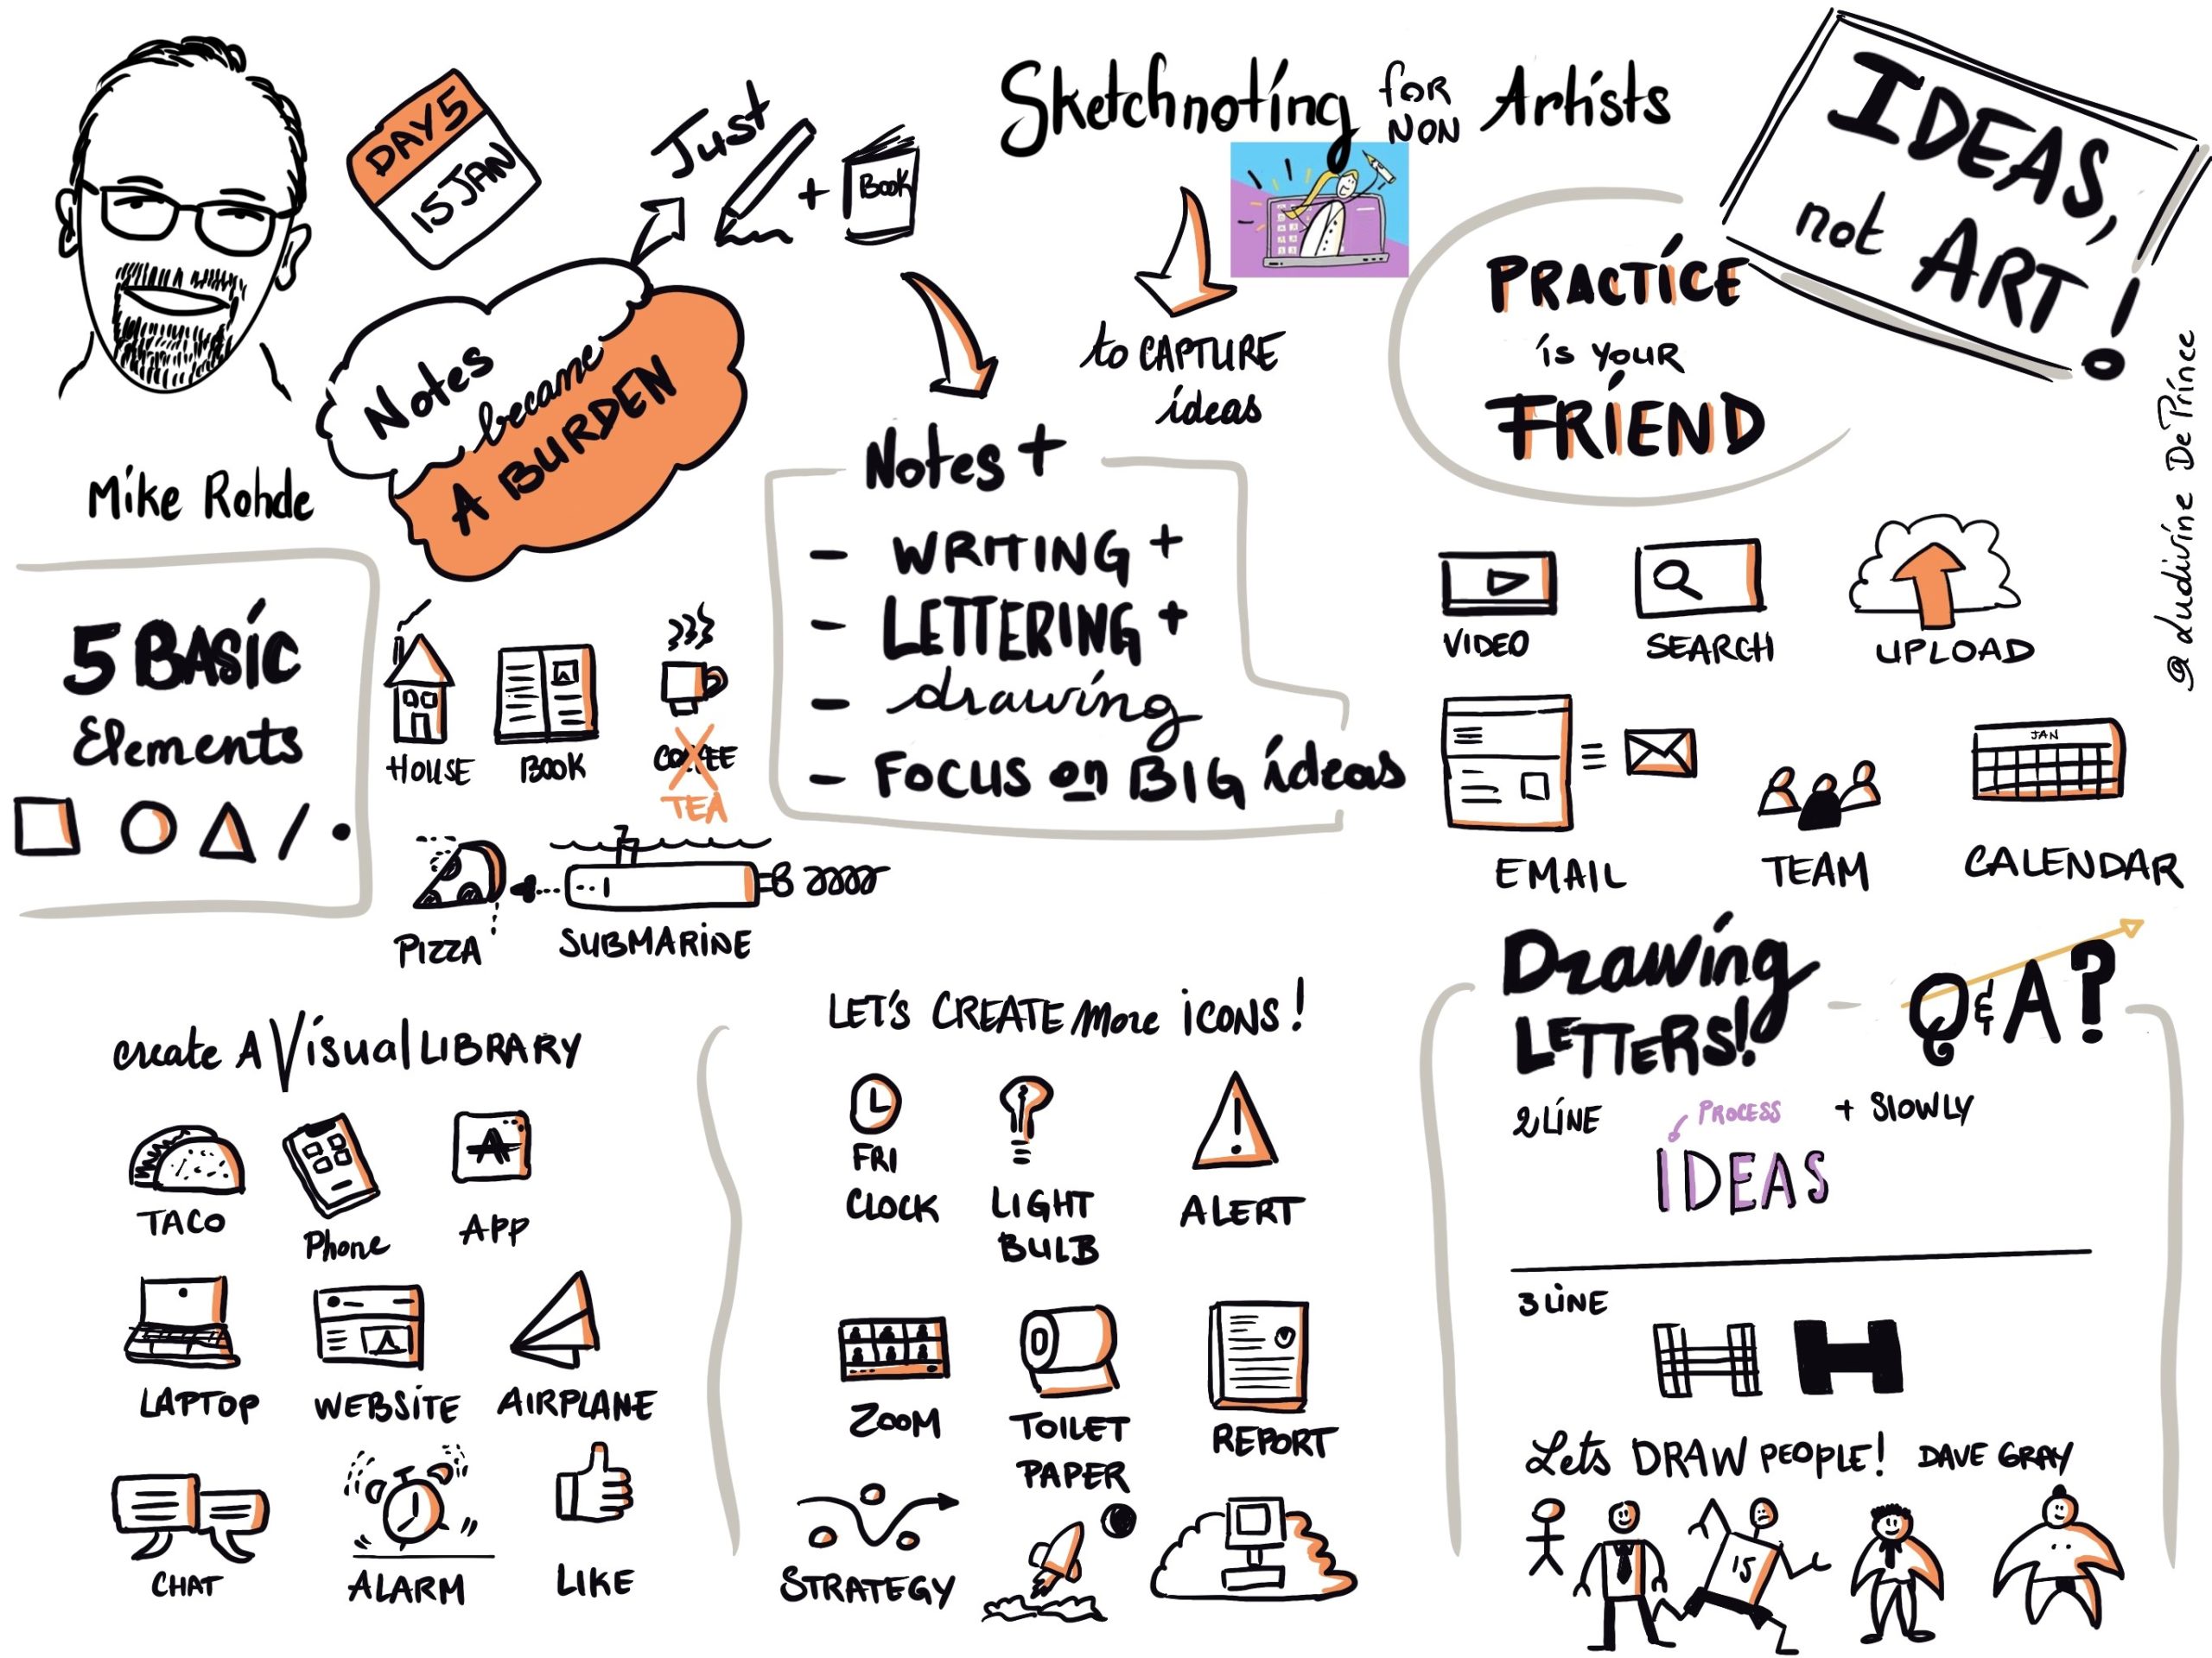 Sketchnoting for NON Artists
IDEAS,
not ART!
DAY 5
15 JAN
Just
+ BOOK
Notes
became
A BURDEN
Mike Rohde
to CAPTURE
ideas
PRACTICE
is YOUR
FRIEND
@ Ludivine De Prince
Notes +
- WRITING +
- LETTERING +
- drawing
- FOCUS on BIG ideas
5 BASIC
Elements
HOUSE
BOOK
COFFEE
TEA
PIZZA
SUBMARINE
VIDEO
SEARCH
UPLOAD
EMAIL
TEAM
JAN
CALENDAR
create A Visual LIBRARY
TACO
Phone
A
APP
LAPTOP
WEBSITE
AIRPLANE
CHAT
ALARM
LIKE
LET'S CREATE More iCONS!
FRI
CLOCK
LIGHT
BULB
!
ALERT
ZOOM
TOILET
PAPER
REPORT
STRATEGY
Drawing
LETTERS!
- Q & A ?
2 LINE
PROCESS
+ SLOWLY
IDEAS
3 LINE
H H
Lets DRAW PEOPLE! DAVE GRAY
15